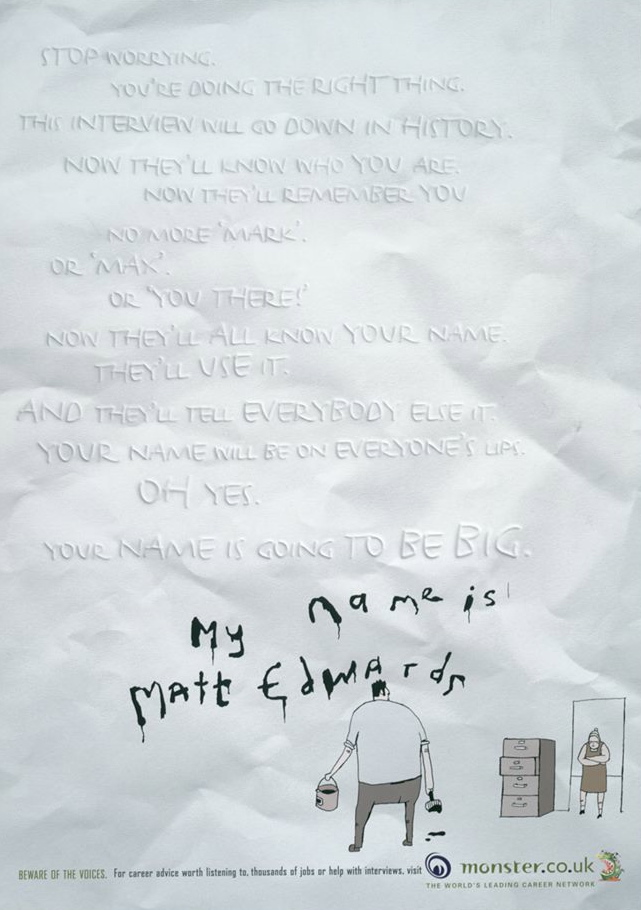 STOP WORRYING.
YOU'RE DOING THE RIGHT THING.
THIS INTERVIEW WILL GO DOWN IN HISTORY.
NOW THEY'LL KNOW WHO YOU ARE.
NOW THEY'LL REMEMBER YOU
NO MORE 'MARK'.
OR 'MAX'.
OR 'YOU THERE!'
NOW THEY'LL ALL KNOW YOUR NAME.
THEY'LL USE IT.
AND THEY'LL TELL EVERYBODY ELSE IT.
YOUR NAME WILL BE ON EVERYONE'S LIPS.
OH YES.
YOUR NAME IS GOING TO BE BIG.
My name is
Matt Edwards
BEWARE OF THE VOICES. For career advice worth listening to, thousands of jobs or help with interviews, visit monster.co.uk
THE WORLD'S LEADING CAREER NETWORK